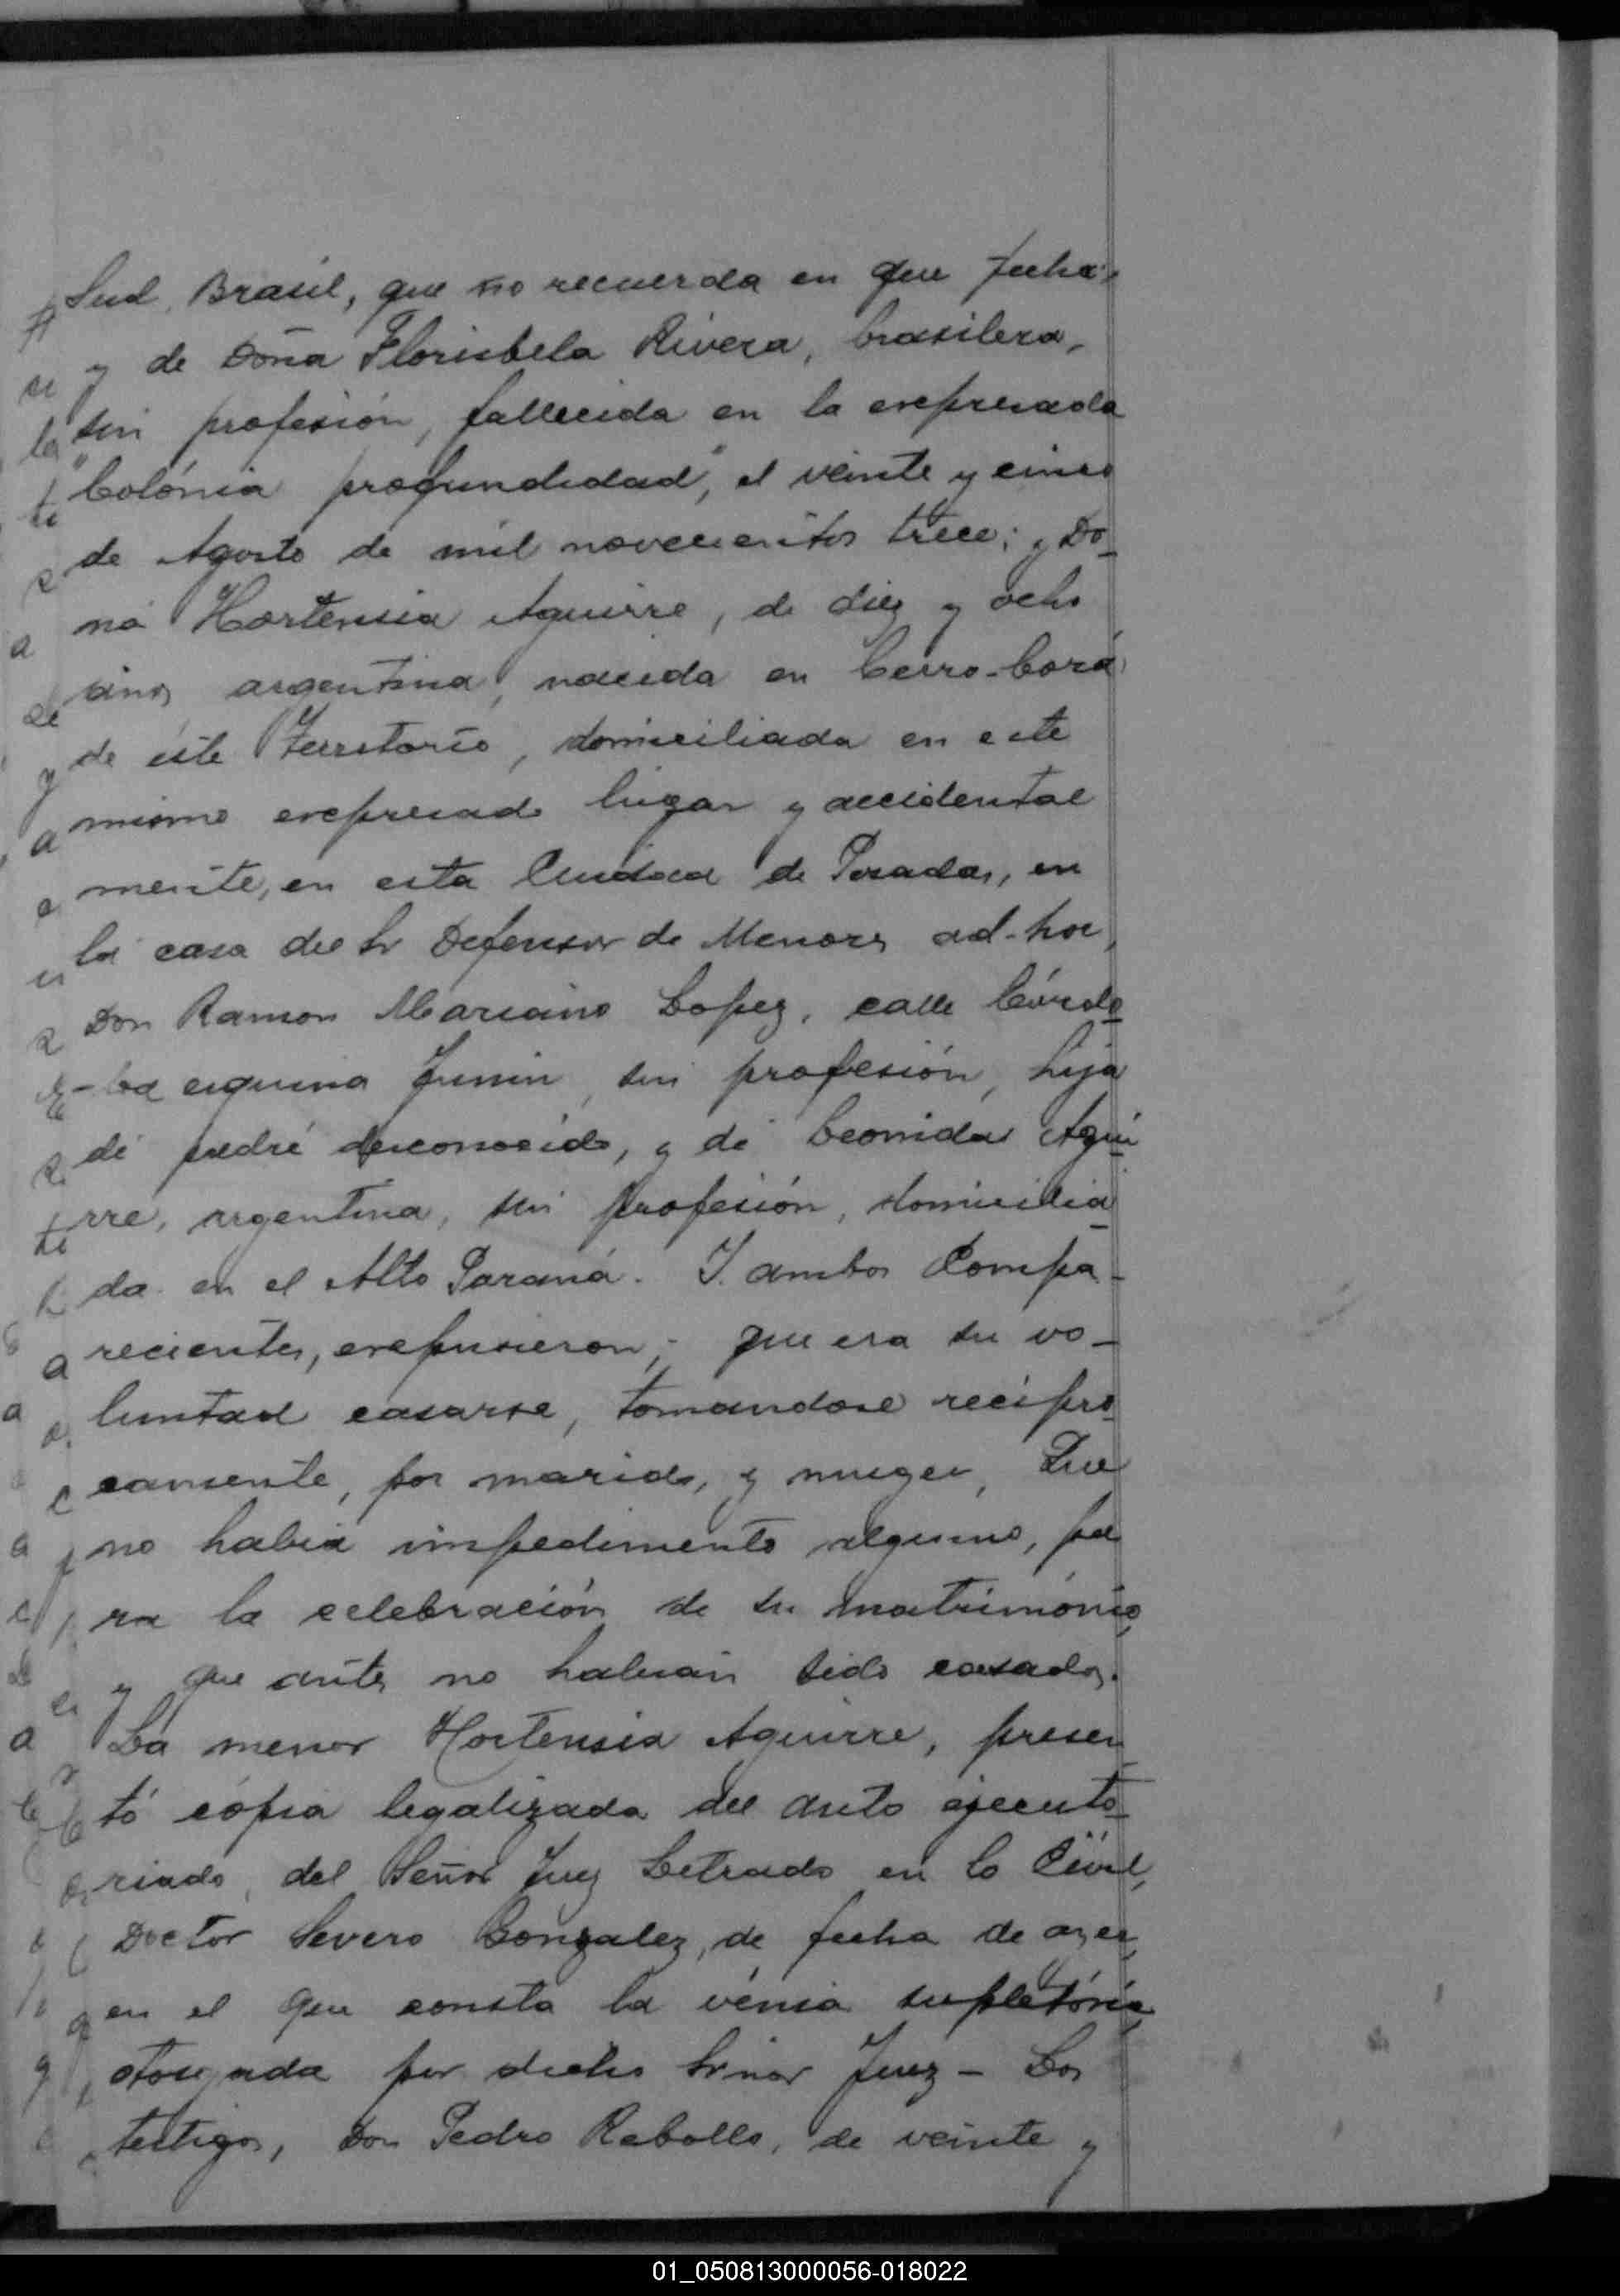 Sud, Brasil, que no recuerda en que fecha,
y de Doña Florisbela Rivera, brasilera,
sin profesión, fallecida en la expresada
"Colónia profundidad", el veinte y cinco
de Agosto de mil novecientos trece; y Do-
ña Hortensia Aguirre, de diez y ocho
años argentina, nacida en Cerro-Corá
de éste Territorio, domiciliada en este
mismo expresado lugar y accidental
mente, en esta Ciudad de Posadas, en
la casa del Sr Defensor de Menores ad-hoc,
Don Ramon Mariano Lopez, calle Córdo-
-ba esquina Junin, sin profesión, hija
de padre desconocido, y de Leonidas Agui-
rre, argentina, sin profesión, domicilia-
da en el Alto Paraná. Y ambos Compa-
recientes, expusieron; que era su vo-
luntad casarse, tomandose recipro-
camente, por marido, y muger, Que
no habia impedimento alguno, pa-
ra la celebración de su matrimónio,
y que antes no habian sido casados.
La menor Hortensia Aguirre, presen-
tó cópia legalizada del auto ejecuto-
riado, del Señor Juez Letrado en lo Civil,
Doctor Severo Gonzalez, de fecha de ayer,
en el que consta la vénia supletória,
otorgada por dicho Señor Juez - Los
testigos, Don Pedro Rebollo, de veinte y
01_050813000056-018022